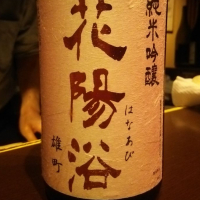 純米吟醸
花陽浴
はなあび
雄町